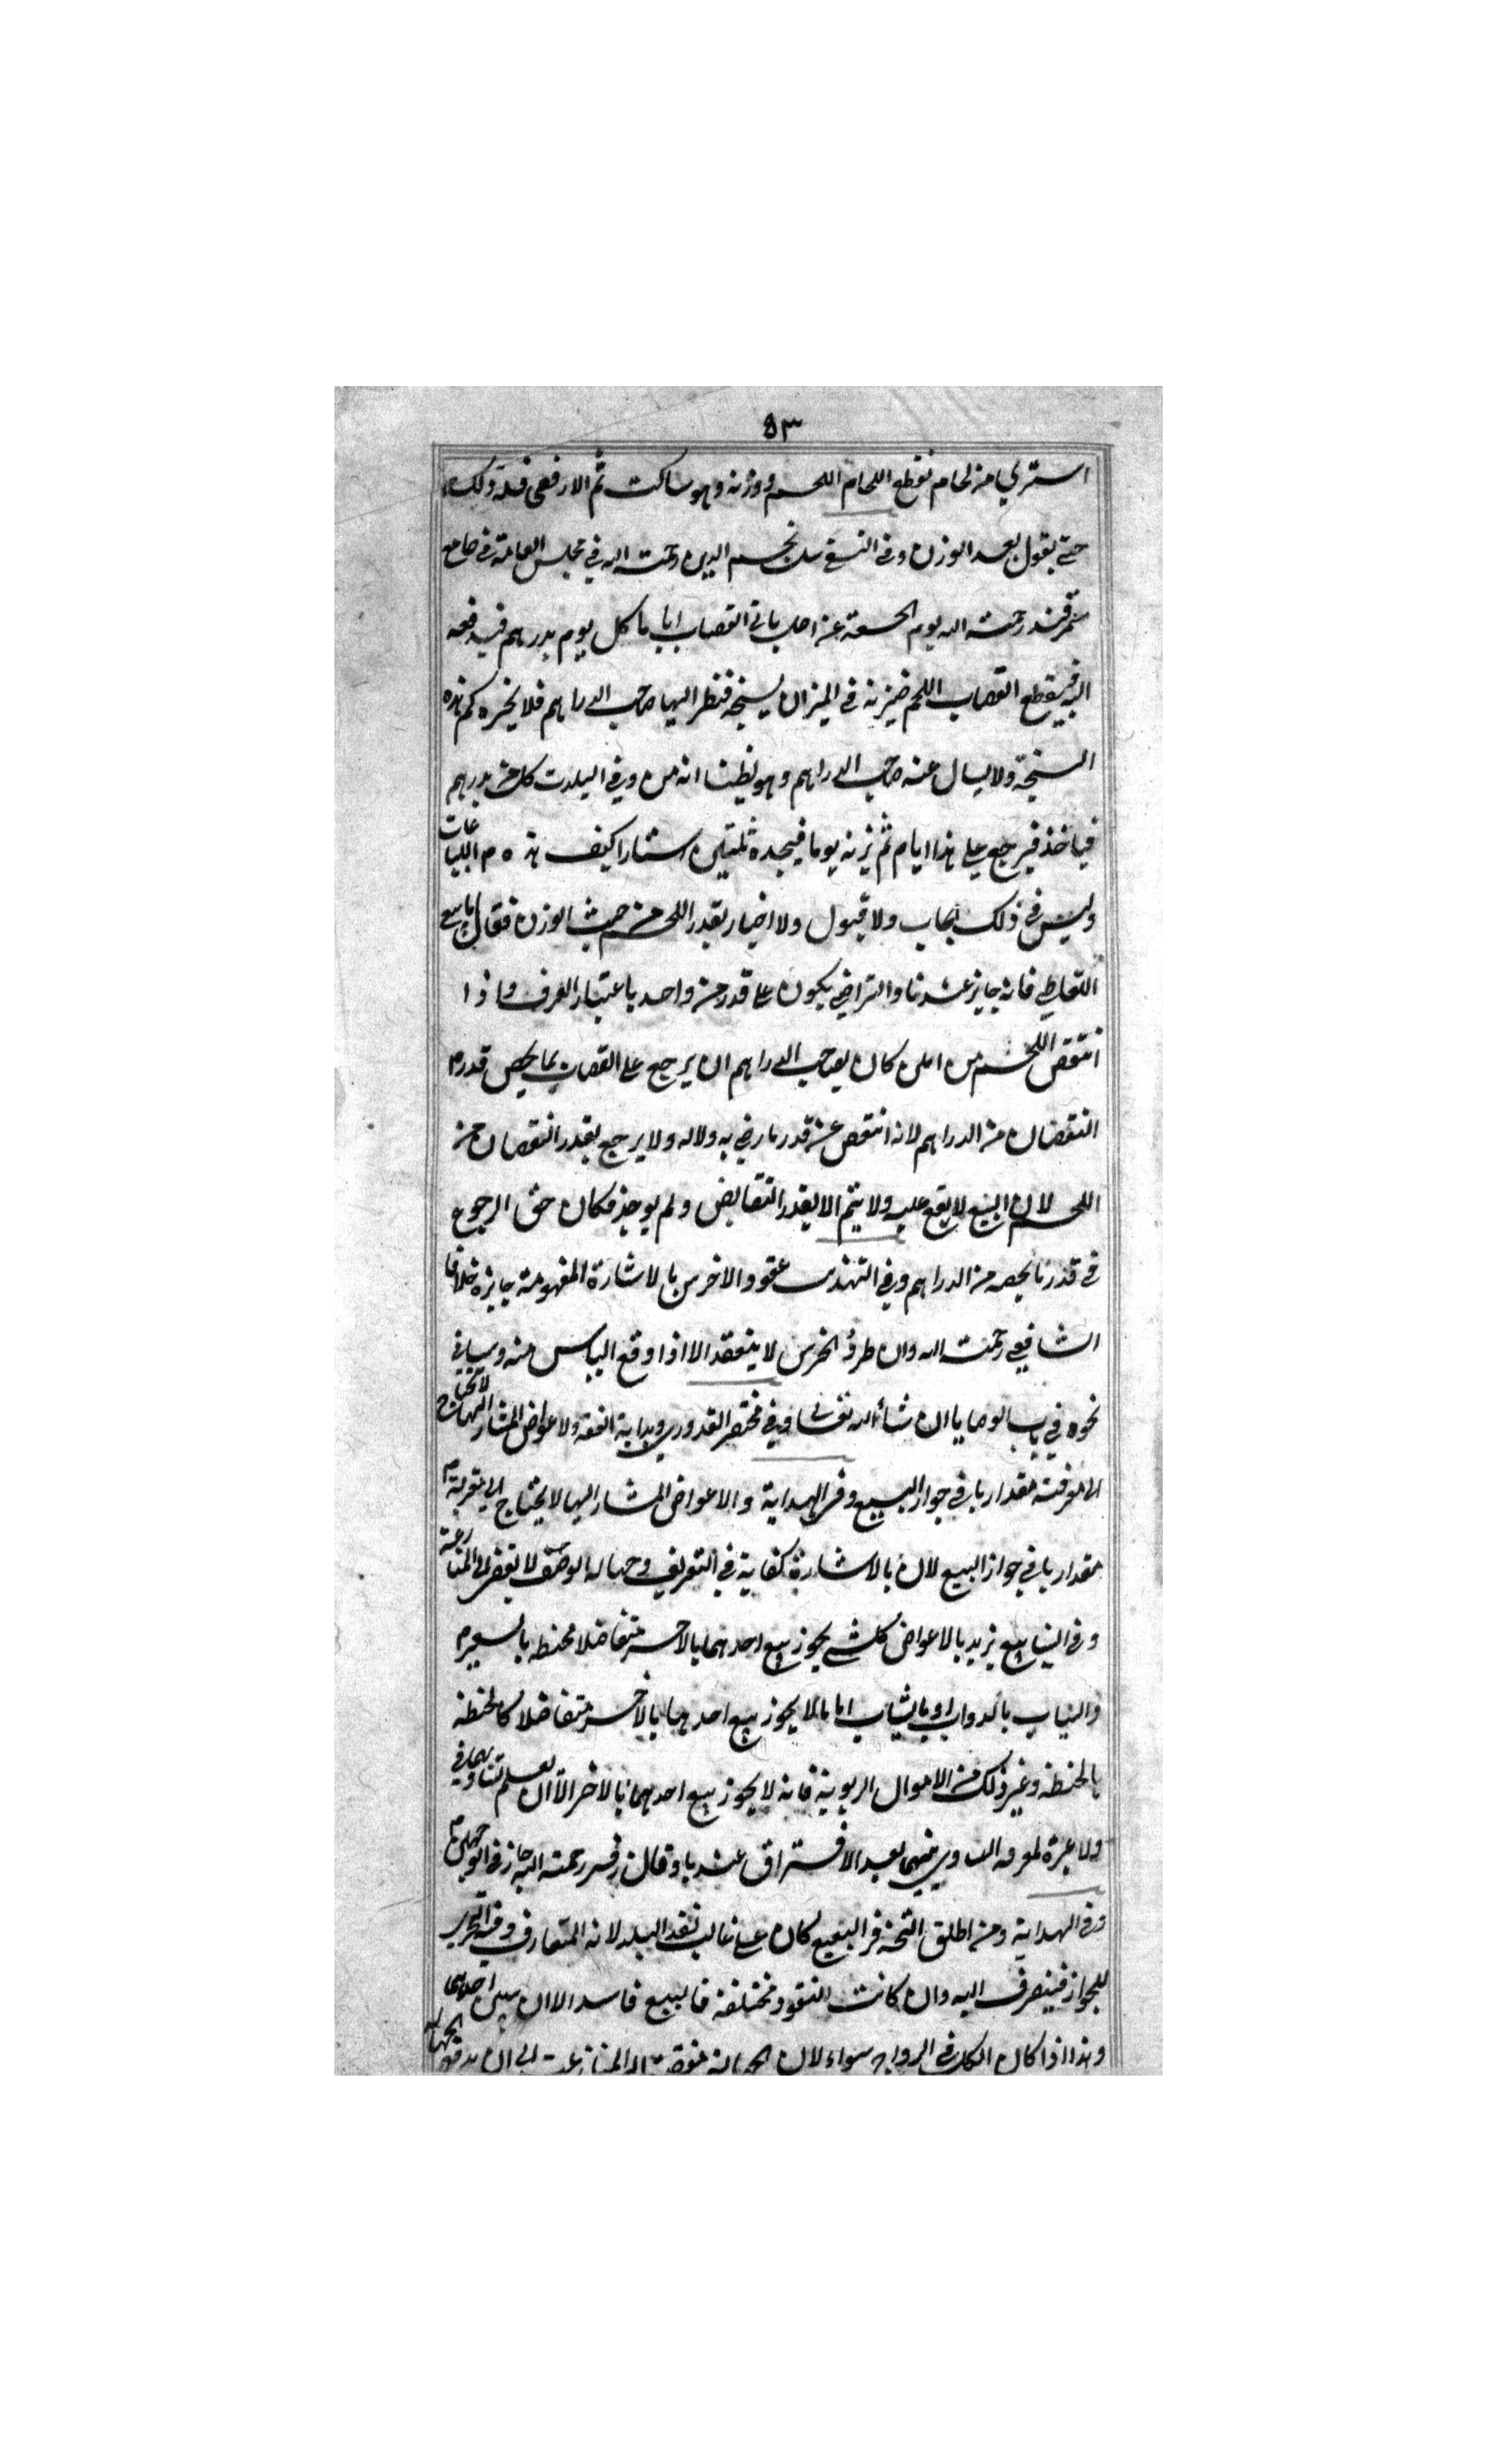 ٥٣
اشتري من لحام فقطع اللحام اللحم ووزنه وهو ساكت ثم الا رفعي فله ذلك
حتى يقول بعد الوزن وفى النسفى سئل نجم الدين رحمت الله في مجلس العامة في جامع
سمرقند رحمته الله يوم الجمعة عن رجل ياتي القصاب اياما كل يوم بدرهم فيدفعه
اليه فيقطع القصاب اللحم فيزنه في الميزان بسنجة فنظر اليها صاحب الدراهم فلا يخبره كم هذه
السنجة ولا يسال عنه صاحب الدراهم وهو يظن انه من وفي البلدة كل من بدرهم
فياخذ فيرجع على هذا ايام ثم يزنه يوما فيجده ثلثين استارا كيف هذه م البياعات
وليس في ذلك ايجاب ولا قبول ولا اخبار بقدر اللحم من حيث الوزن فقال بياع
التعاطي فانه جايز عندنا والتراضي يكون على قدر من واحد باعتبار العرف واذا
انتقص اللحم من المن كان لصاحب الدراهم ان يرجع على القصاب بما يخص قدر م
النقصان من الدراهم لانه انتقص عن قدر ما رضي به ولاله ولا يرجع بقدر النقصان من
اللحم لان البيع لا يقع عليه ولا يتم الا بقدر التقابض ولم يوجد فكان حق الرجوع
في قدر ما يخصه من الدراهم وفي التهذيب عقود الاخرس بالاشارة المفهومة جايزة خلافا
الشافعي رحمت الله وان طرؤ الخرس لا ينعقد الا اذا وقع الياس منه وسياتي
نحوه في باب الوصايا ان شاء الله تعالى وفي مختصر القدوري وبداية الفقه ولاعواض المشار اليها لا يحتاج
الى معرفته مقدارها في جواز البيع وفي الهداية والاعواض المشار اليها لا يحتاج الى معرفة م
مقدارها في جواز البيع لان بالاشارة كفاية في التعريف وجهالة الوصف لا يفضي الى المنازعة
وفي الينابيع يريد بالاعواض كل شي يجوز بيع احدهما بالاخر متفاضلا كحنطه بالشعير م
والثياب بالدواب او بالثياب اما مالا يجوز بيع احدهما بالاخر متفاضلا كالحنطه
بالحنطه وغير ذلك من الاموال الربوية فانه لا يجوز بيع احدهما بالاخر الا ان يعلم تساويهما في
ولا عبرة لمعرفه التساوي بينهما بعد الافتراق عندنا وقال زفر رحمته الله جاز في الوجهين م
وفي الهداية ومن اطلق الثمن في البيع كان على غالب نقد البلد لانه المتعارف وفيه التحري
للجواز فينصرف اليه وان كانت النقود مختلفة فالبيع فاسد الا ان يبين احدهما
وهذا اذا كان الكل في الرواج سواء لان الجهالة مفضية الى المنازعة الى ان يرفع الجهالة